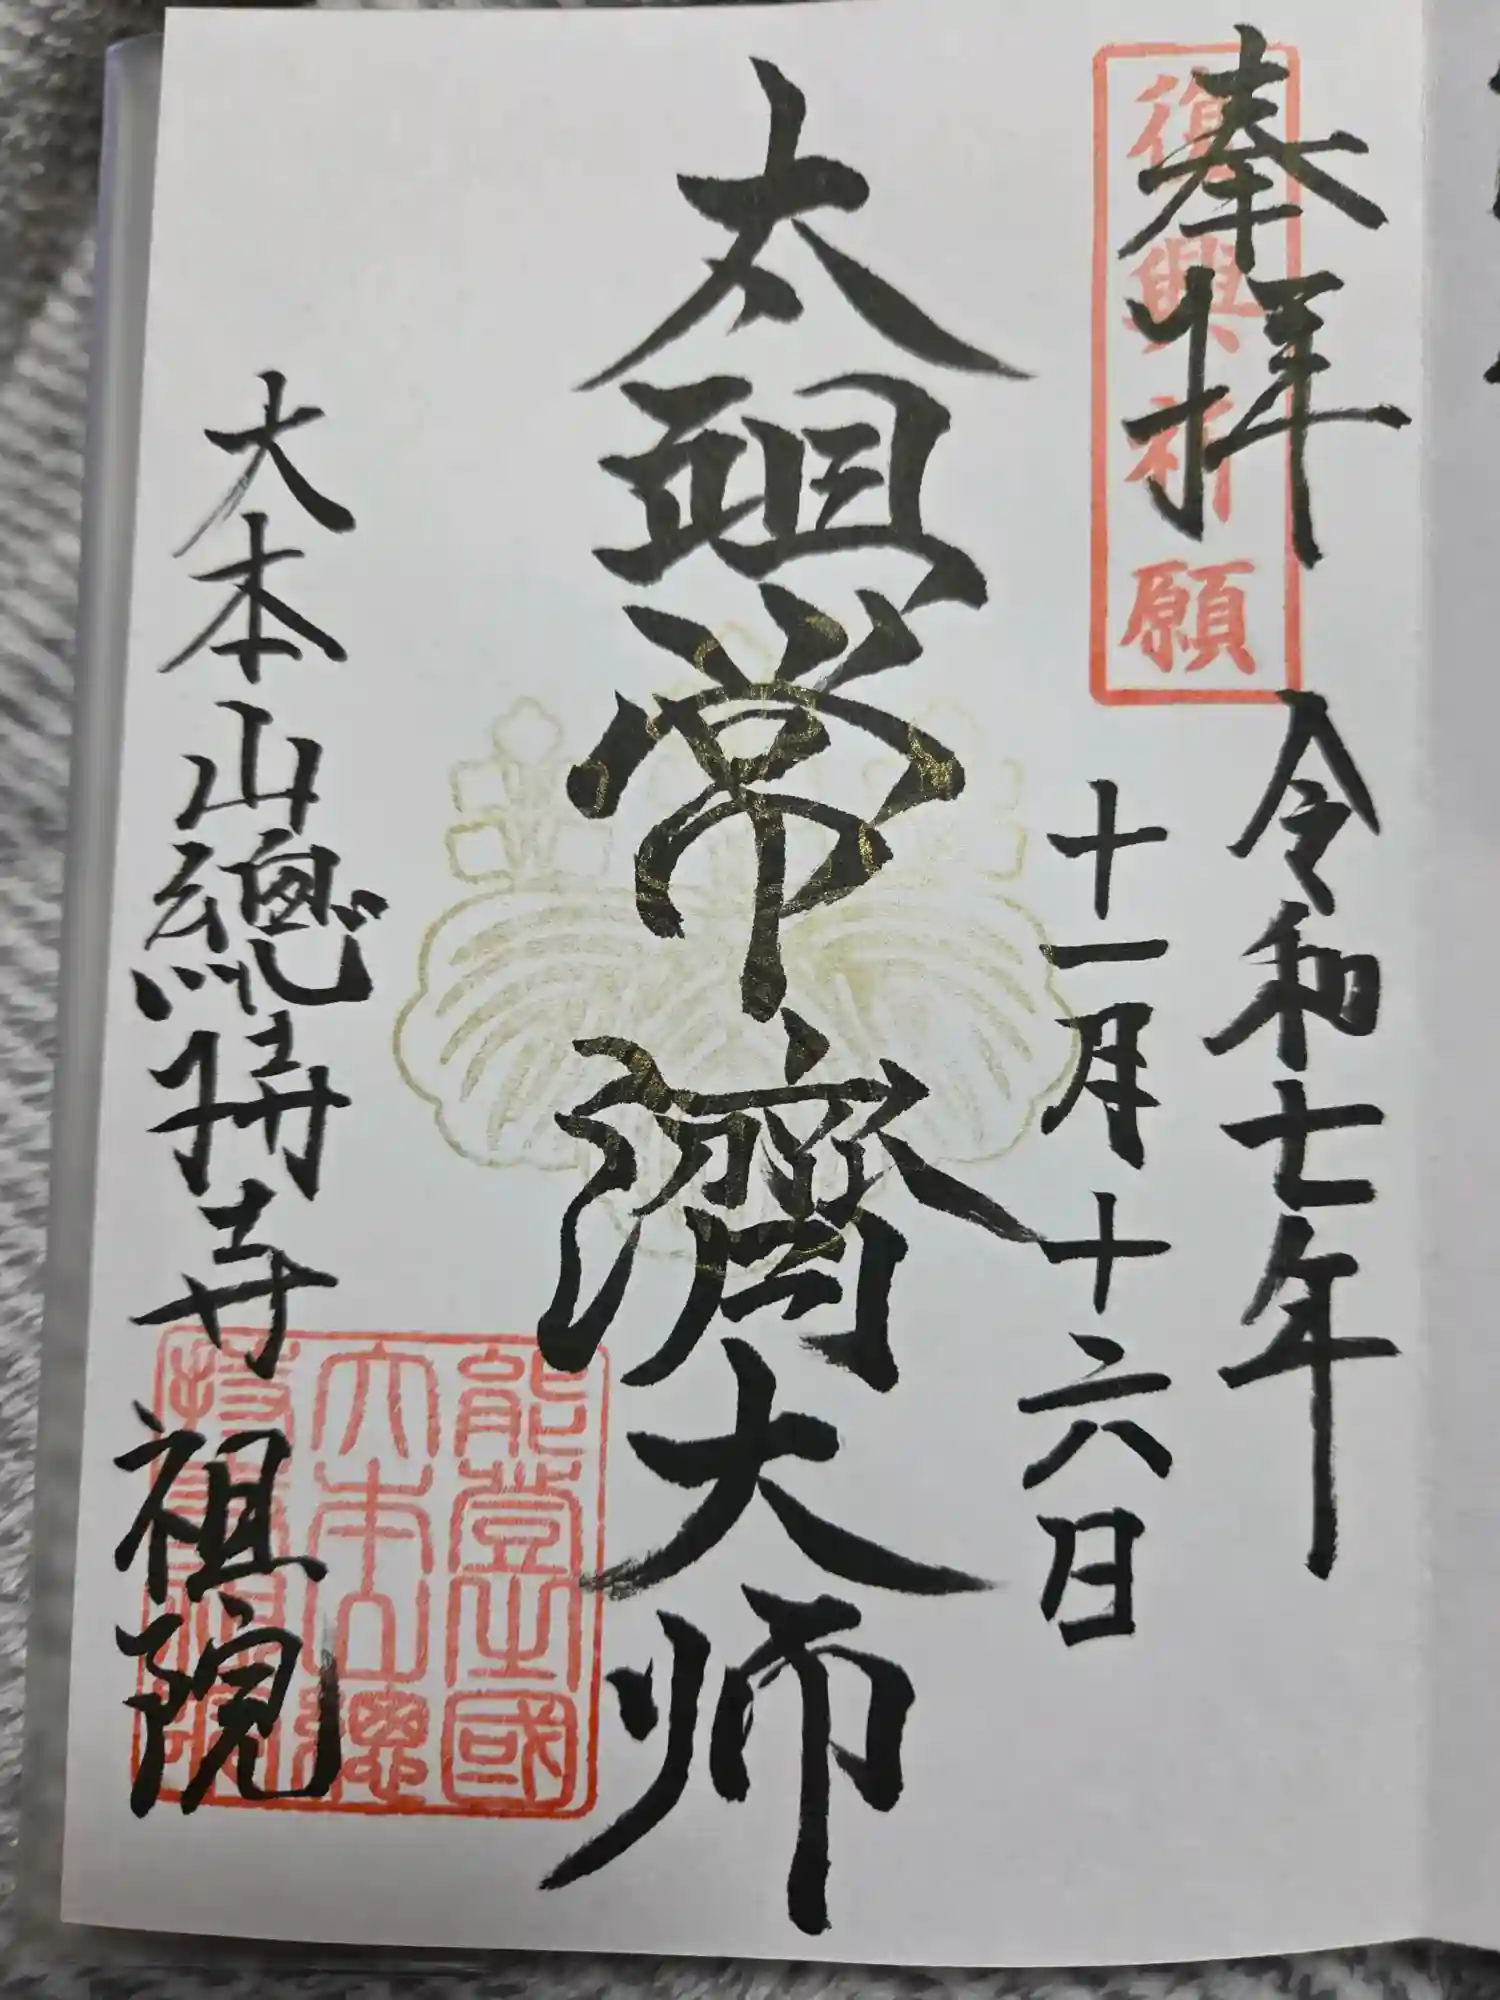 奉拝
復興祈願
令和七年
十一月十六日
太祖常濟大师
大本山總持寺祖院
能登國
大本山總
持寺